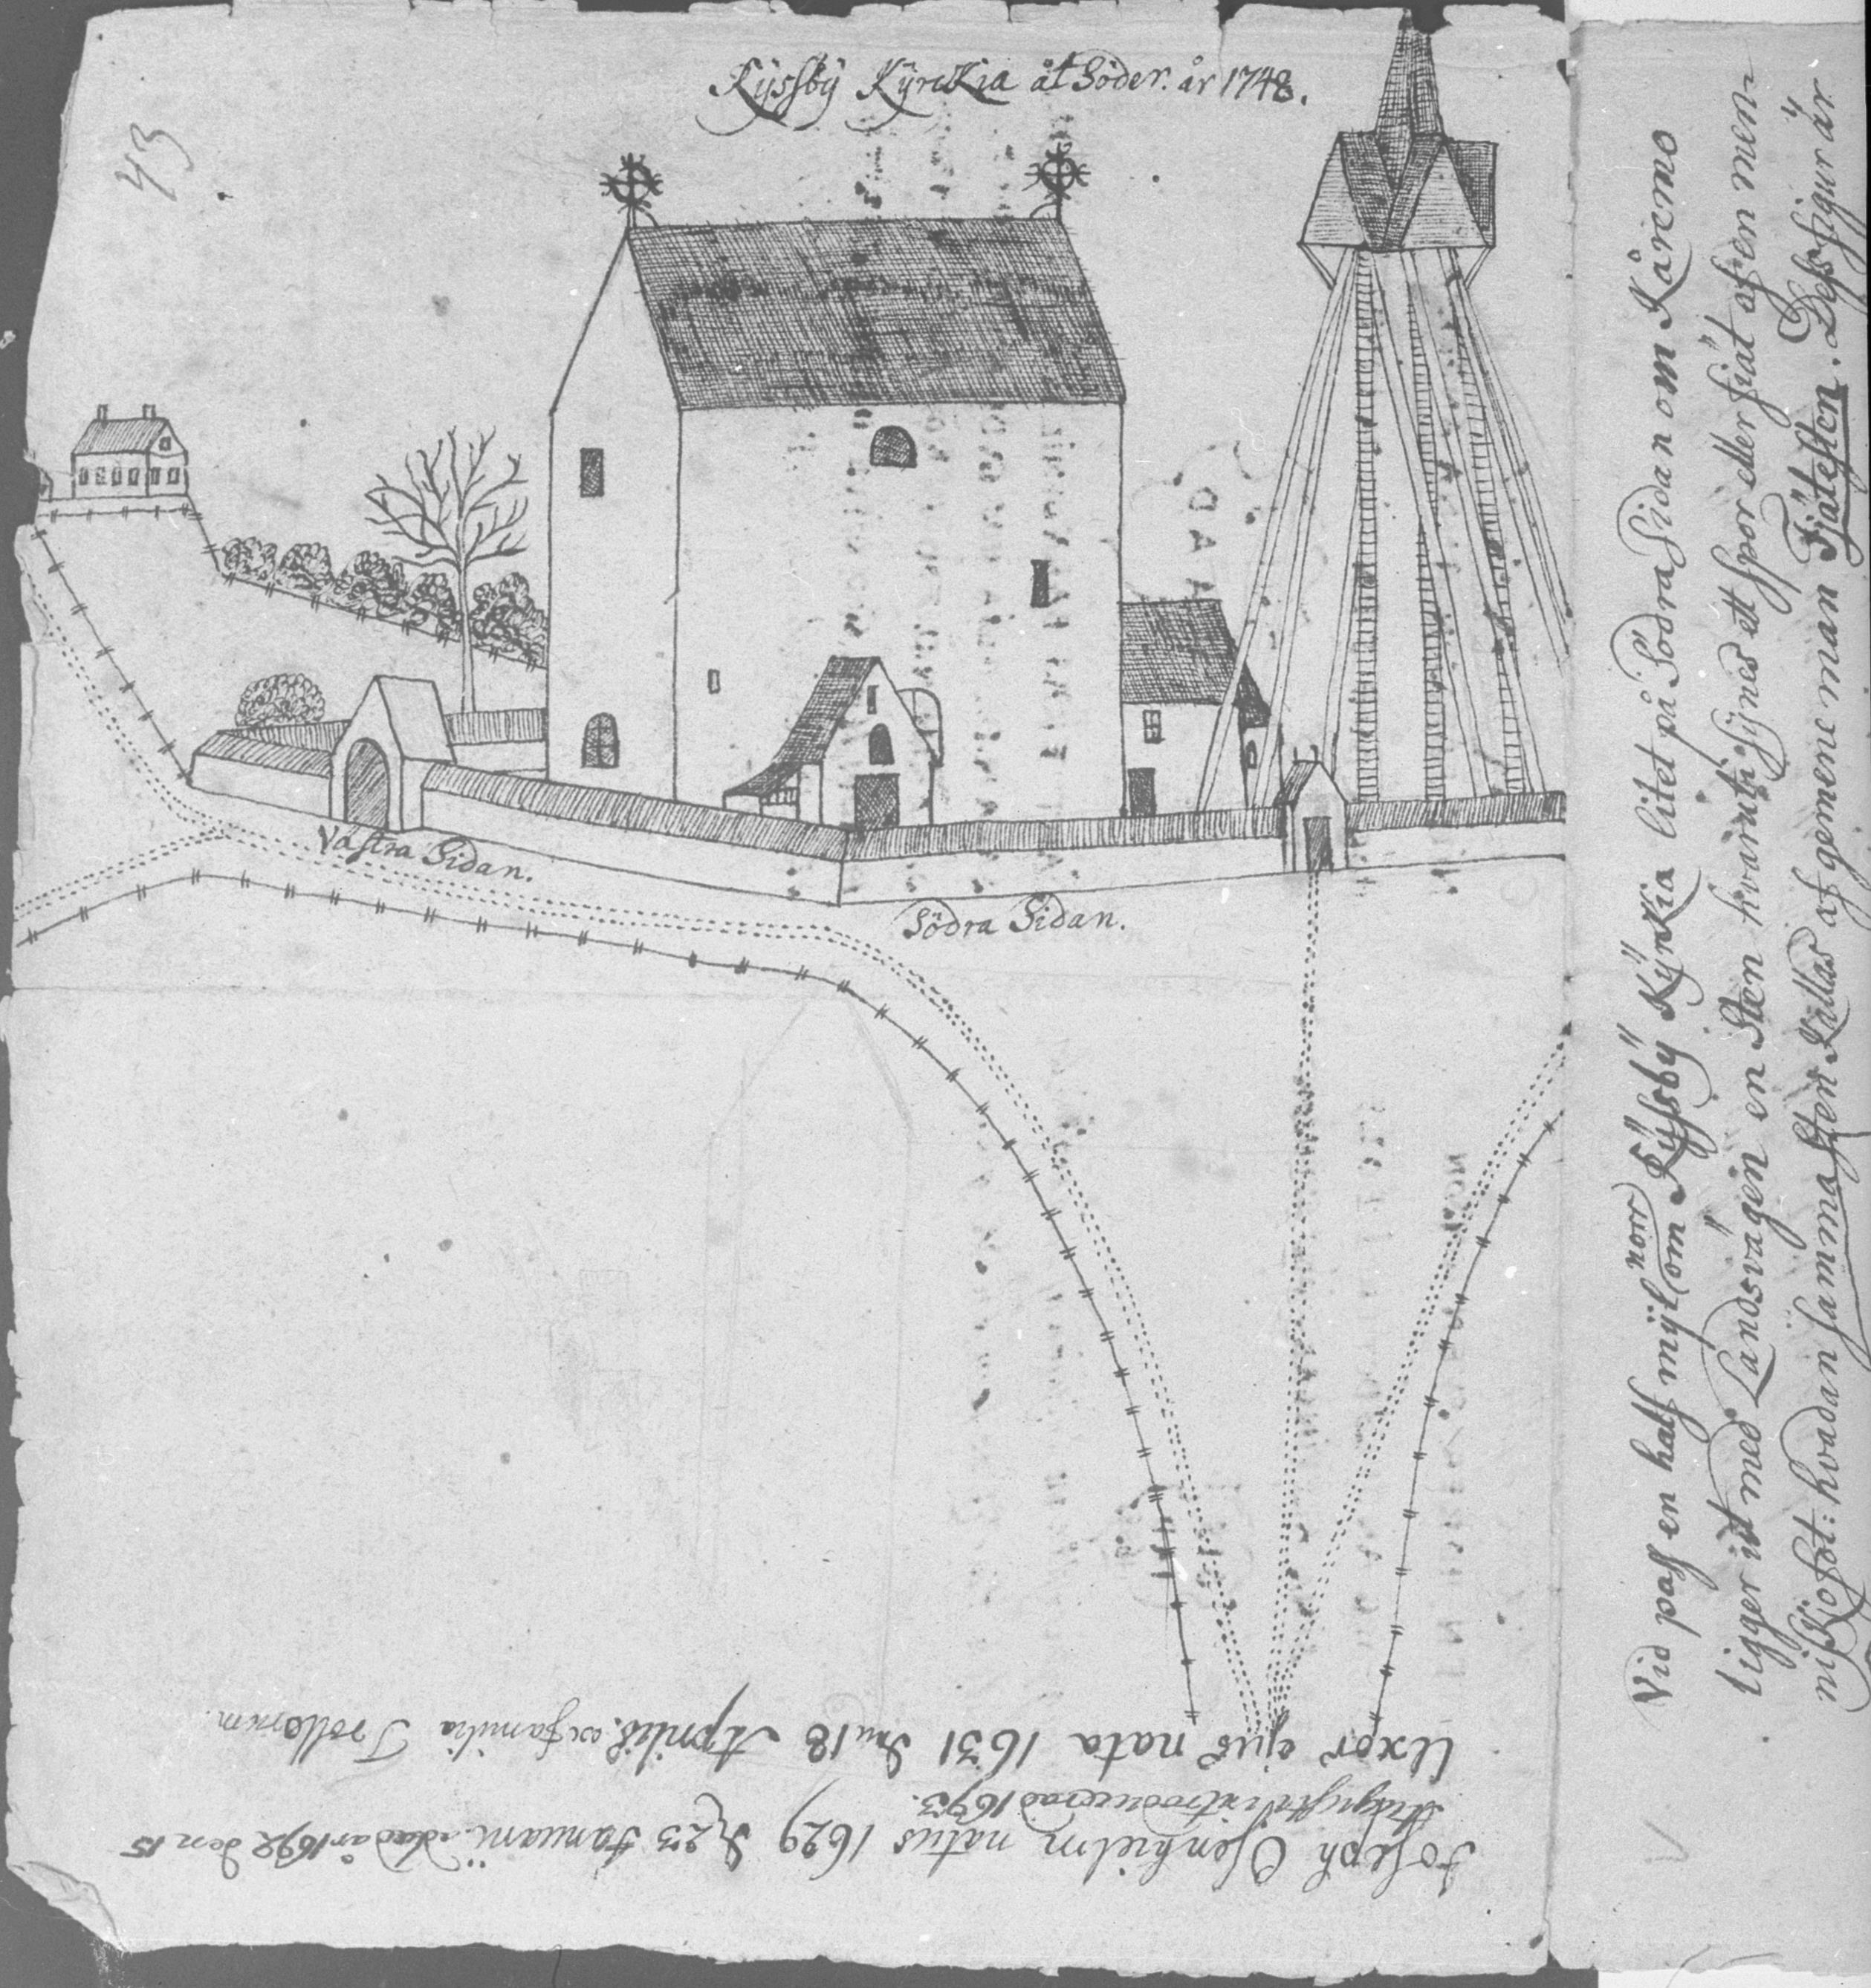 Rÿssbÿ Kÿrckia åt Söder. år 1748.
43
Västra Sidan.
Södra Sidan.
Vid pass en half mÿil norr om Rÿssbÿ Kÿrkia litet på Södra Sidan om Kåremo
ligger ut med Landsvägen en Sten hvaruti sÿnes ett spor eller fiät af en men-
niskiofot: hvadan samma sten kallas af gemene man Fjätesten. Dess figur är
Uxor ejus nata 1631 d. 18 Aprilis. ex familia Trollorum.
introducerad 1673.
Joseph Osenhielm natus 1629 d. 23 Januarii. död år 1692 den 15